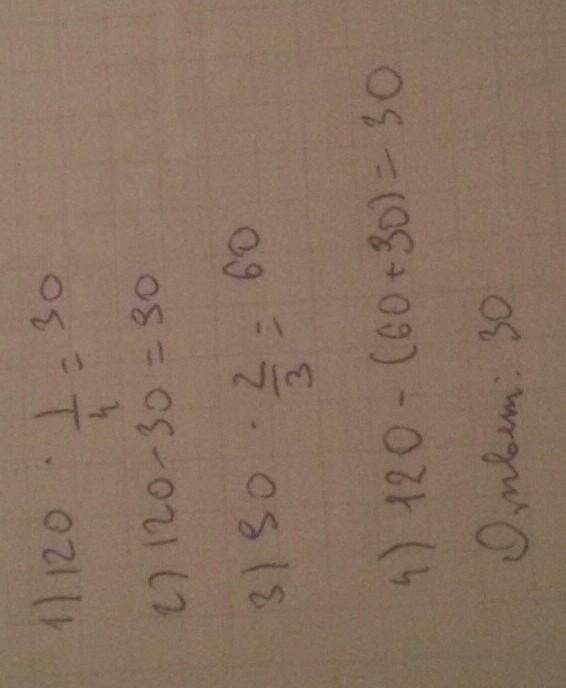 1) 120 · 1/4 = 30
2) 120 - 30 = 90
3) 90 · 2/3 = 60
4) 120 - (60 + 30) = 30
Ответ: 30